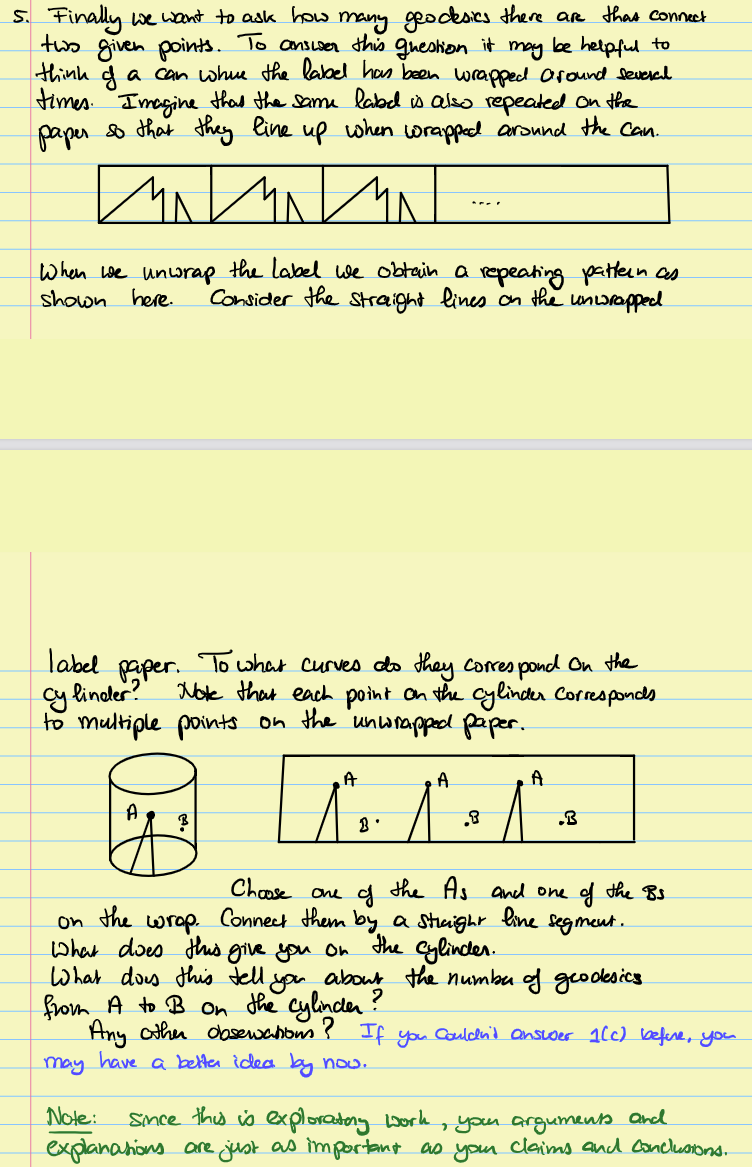 5. Finally we want to ask how many geodesics there are that connect
two given points. To answer this question it may be helpful to
think of a can where the label has been wrapped around several
times. Imagine that the same label is also repeated on the
paper so that they line up when wrapped around the can.
....
When we unwrap the label we obtain a repeating pattern as
shown here. Consider the straight lines on the unwrapped
label paper. To what curves do they correspond on the
cylinder? Note that each point on the cylinder corresponds
to multiple points on the unwrapped paper.
A B
A A A
B B B
Choose one of the As and one of the Bs
on the wrap. Connect them by a straight line segment.
What does this give you on the cylinder.
What does this tell you about the number of geodesics
from A to B on the cylinder?
Any other observations? If you couldn't answer 1(c) before, you
may have a better idea by now.
Note: Since this is exploratory work, your arguments and
explanations are just as important as your claims and conclusions.